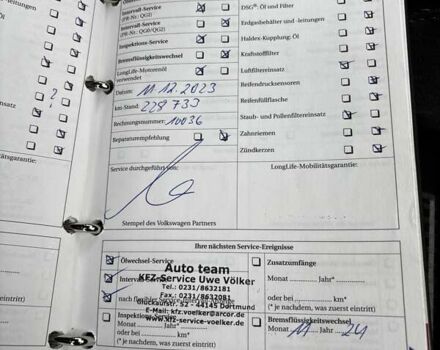 -leitungen
Intervall-Service
(PR-Nr.: QG2)
Intervall-Service
(PR-Nr.: QG0/QG2)
Inspektions-Service
Bremsflüssigkeitswechsel
LongLife-Motorenöl
verwendet
Datum: 11.12.2023
km-Stand: 229 733
Rechnungsnummer: 10036
Reparaturempfehlung
Service durchgeführt von:
Stempel des Volkswagen Partners
DSG®: Öl und Filter
Erdgasbehälter und -leitungen
Haldex-Kupplung: Öl
Kraftstofffilter
Luftfiltereinsatz
Reifendrucksensoren
Reifenfüllflasche
Staub- und Pollenfiltereinsatz
Zahnriemen
Zündkerzen
LongLife-Mobilitätsgarantie:
?
einsatz
itätsgarantie:
Ihre nächsten Service-Ereignisse
Ölwechsel-Service
Auto team
KFZ-Service Uwe Völker
Tel.: 0231/8632181
Fax.: 0231/8632081
44145 Dortmund
E-Mail: kfz.voelker@arcor.de
www.kfz-service-voelker.de
Inspektions-Service
Monat
(* je nachdem, was zuerst eintritt)
Zusatzumfänge
Monat Jahr*
oder bei km*
(* je nachdem, was zuerst eintritt)
Bremsflüssigkeitswechsel
Monat 11 Jahr 24
(* je nachdem, was zuerst eintritt)
Jahr*
km*
zuerst eintritt)